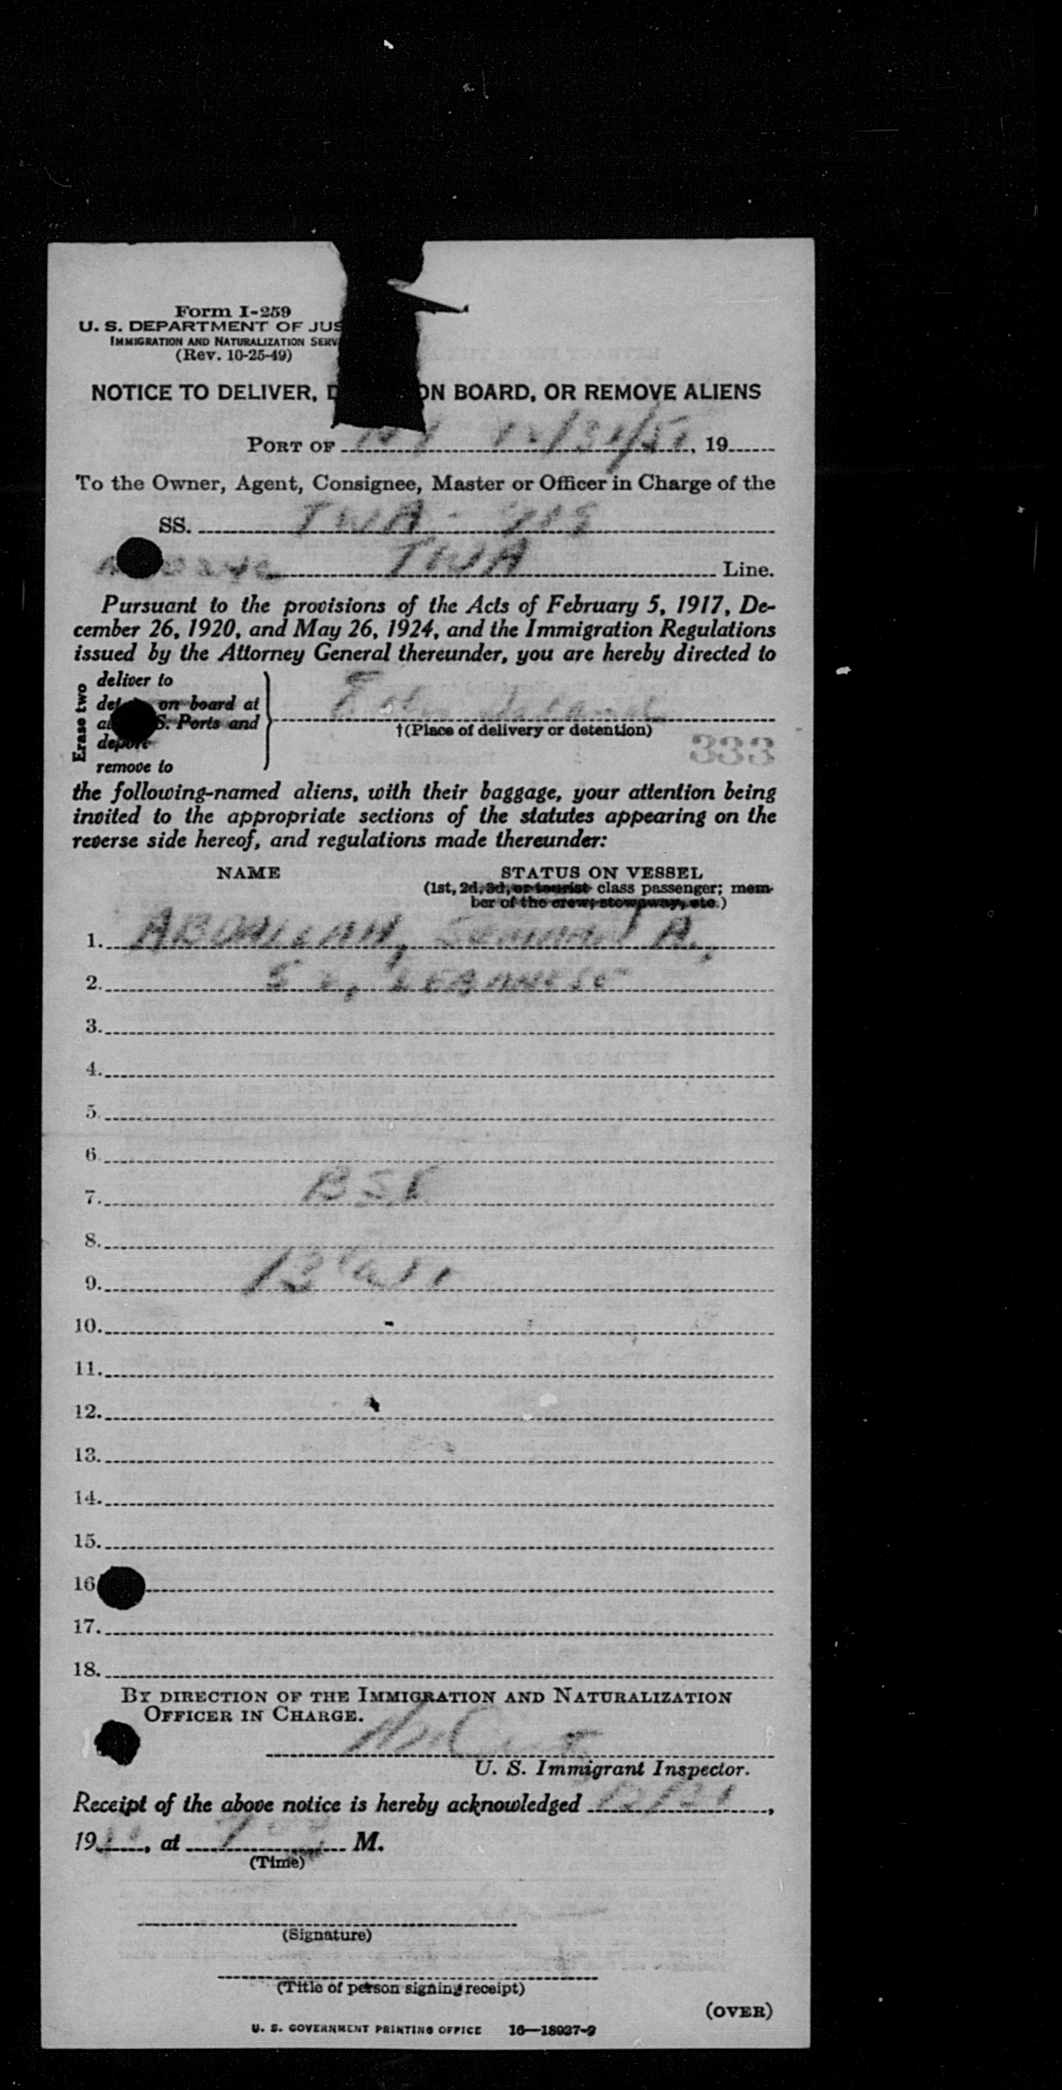 Form I-259
U. S. DEPARTMENT OF JUS
IMMIGRATION AND NATURALIZATION SERV
(Rev. 10-25-49)
NOTICE TO DELIVER, D ON BOARD, OR REMOVE ALIENS
PORT OF NY 12/31/51, 19
To the Owner, Agent, Consignee, Master or Officer in Charge of the
SS. TWA -
TWA Line.
Pursuant to the provisions of the Acts of February 5, 1917, De-
cember 26, 1920, and May 26, 1924, and the Immigration Regulations
issued by the Attorney General thereunder, you are hereby directed to
Erase two
deliver to
on board at
S. Ports and
deport
remove to
Ellis Island
†(Place of delivery or detention)
333
the following-named aliens, with their baggage, your attention being
invited to the appropriate sections of the statutes appearing on the
reverse side hereof, and regulations made thereunder:
NAME STATUS ON VESSEL
(1st, 2d, 3d, or tourist class passenger; mem-
ber of the crew, stowaway, etc.)
1. ABDALLAH, A.,
2. LEBANESE
3.
4.
5.
6.
7. BSI
8.
9.
10.
11.
12.
13.
14.
15.
16
17.
18.
BY DIRECTION OF THE IMMIGRATION AND NATURALIZATION
OFFICER IN CHARGE.
U. S. Immigrant Inspector.
Receipt of the above notice is hereby acknowledged 12/31,
19, at M.
(Time)
(Signature)
(Title of person signing receipt)
(OVER)
U. S. GOVERNMENT PRINTING OFFICE 16—18027-2